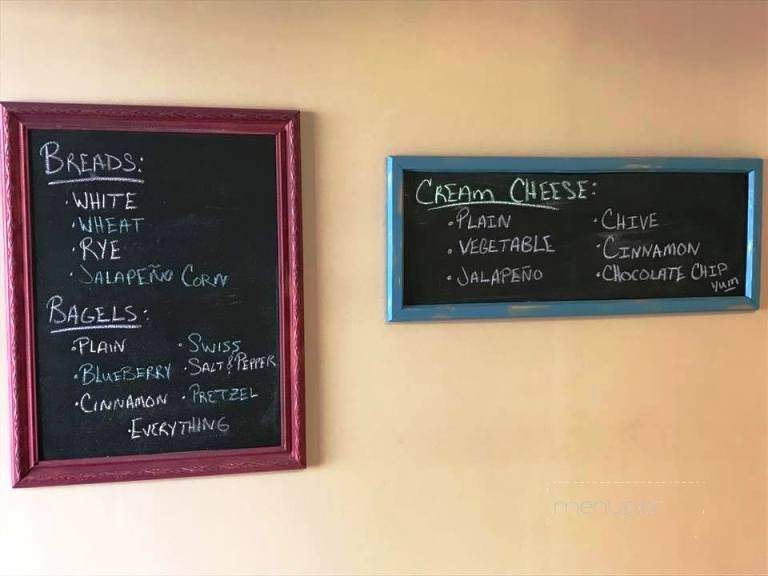 BREADS:
• WHITE
• WHEAT
• RYE
• JALAPEÑO CORN
BAGELS:
• PLAIN
• BLUEBERRY
• CINNAMON
• SWISS
• SALT & PEPPER
• PRETZEL
• EVERYTHING
CREAM CHEESE:
• PLAIN
• VEGETABLE
• JALAPEÑO
• CHIVE
• CINNAMON
• CHOCOLATE CHIP
Yum